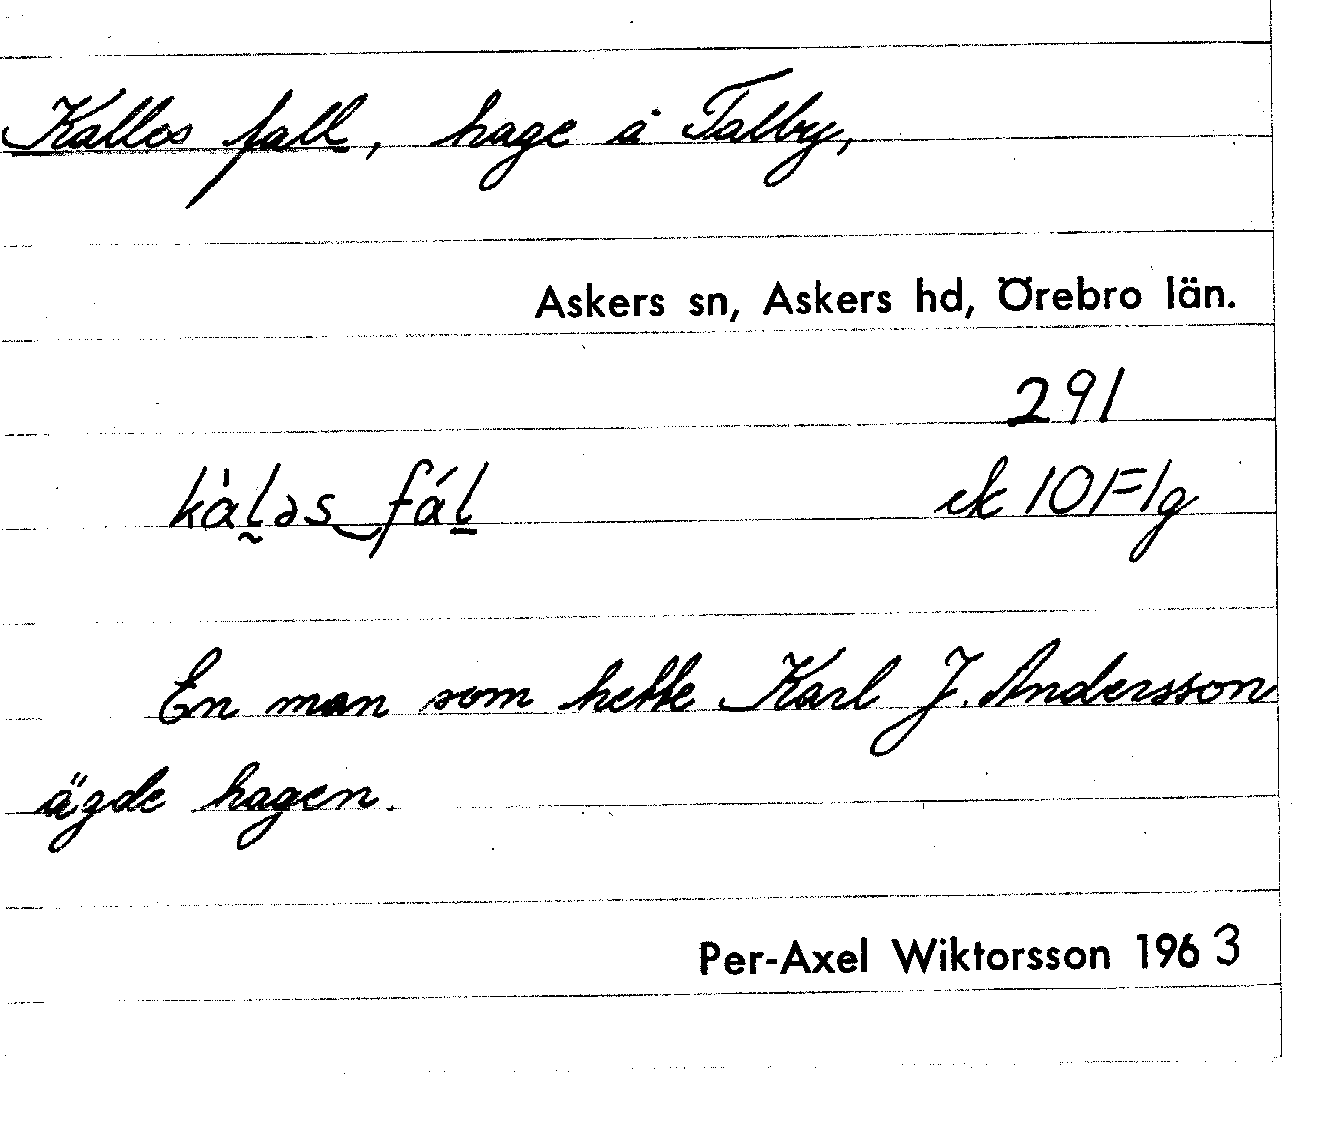 Kalles fall, hage å Talby,
Askers sn, Askers hd, Örebro län.
291
kàl̰əs‿fál̲
ek 10F1g
En man som hette Karl J. Andersson
ägde hagen.
Per-Axel Wiktorsson 1963